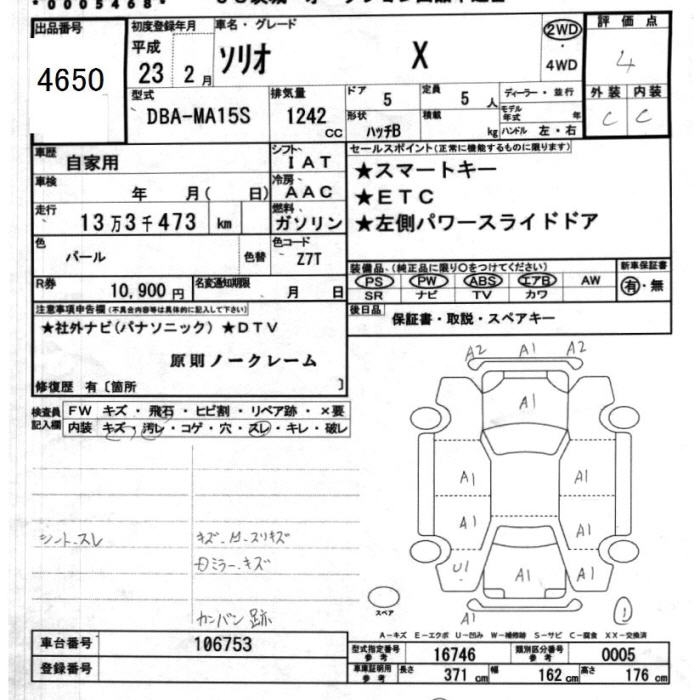 *0005468*
出品番号
4650
初度登録年月
平成
23 2月
車名・グレード
ソリオ X
2WD
・
4WD
評価点
4
外装 内装
C C
型式
DBA-MA15S
排気量
1242
CC
ドア
5
定員
5 人
形状
ハッチB
積載
kg
ディーラー・並行
モデル年式 年
ハンドル 左・右
車歴
自家用
シフト
IAT
車検
年 月( 日)
冷房
AAC
走行
13万3千473 km
燃料
ガソリン
色
パール
色替
色コード
Z7T
R券
10,900 円
名変通知期限
月 日
セールスポイント(正常に機能するものに限ります)
★スマートキー
★ETC
★左側パワースライドドア
装備品、(純正品に限り○をつけてください)
PS PW ABS エアB AW
SR ナビ TV カワ
新車保証書
有・無
後日品
保証書・取説・スペアキー
注意事項申告欄(不具合内容等は具体的に記入して下さい)
★社外ナビ(パナソニック) ★DTV
原則ノークレーム
修復歴 有〔箇所 〕
検査員記入欄
FW キズ・飛石・ヒビ割・リペア跡・×要
内装 キズ・汚レ・コゲ・穴・スレ・キレ・破レ
シート.スレ
カンバン跡
A2 A1 A2
A1
A1 A1
A1 A1
U1 A1 A1
A1
スペア
1
A-キズ E-エクボ U-凹み W-補修跡 S-サビ C-腐食 XX-交換済
車台番号
106753
登録番号
型式指定番号
参考
16746
類別区分番号
参考
0005
車庫証明用
参考
長さ 371 cm
幅 162 cm
高さ 176 cm